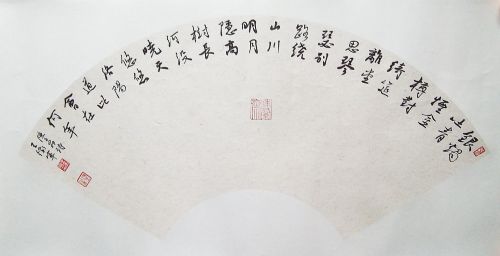 銀燭
吐青
煙金
樽對
綺筵
離堂
思琴
瑟别
路繞
山川
明月
隱高
樹長
河没
曉天
悠悠
洛陽
道此
會在
何年
陳子昂詩